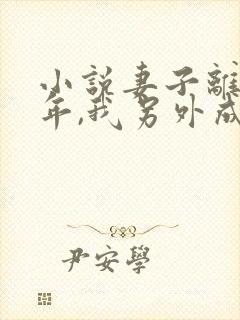 小說妻子離
年,我另外成
尹安學